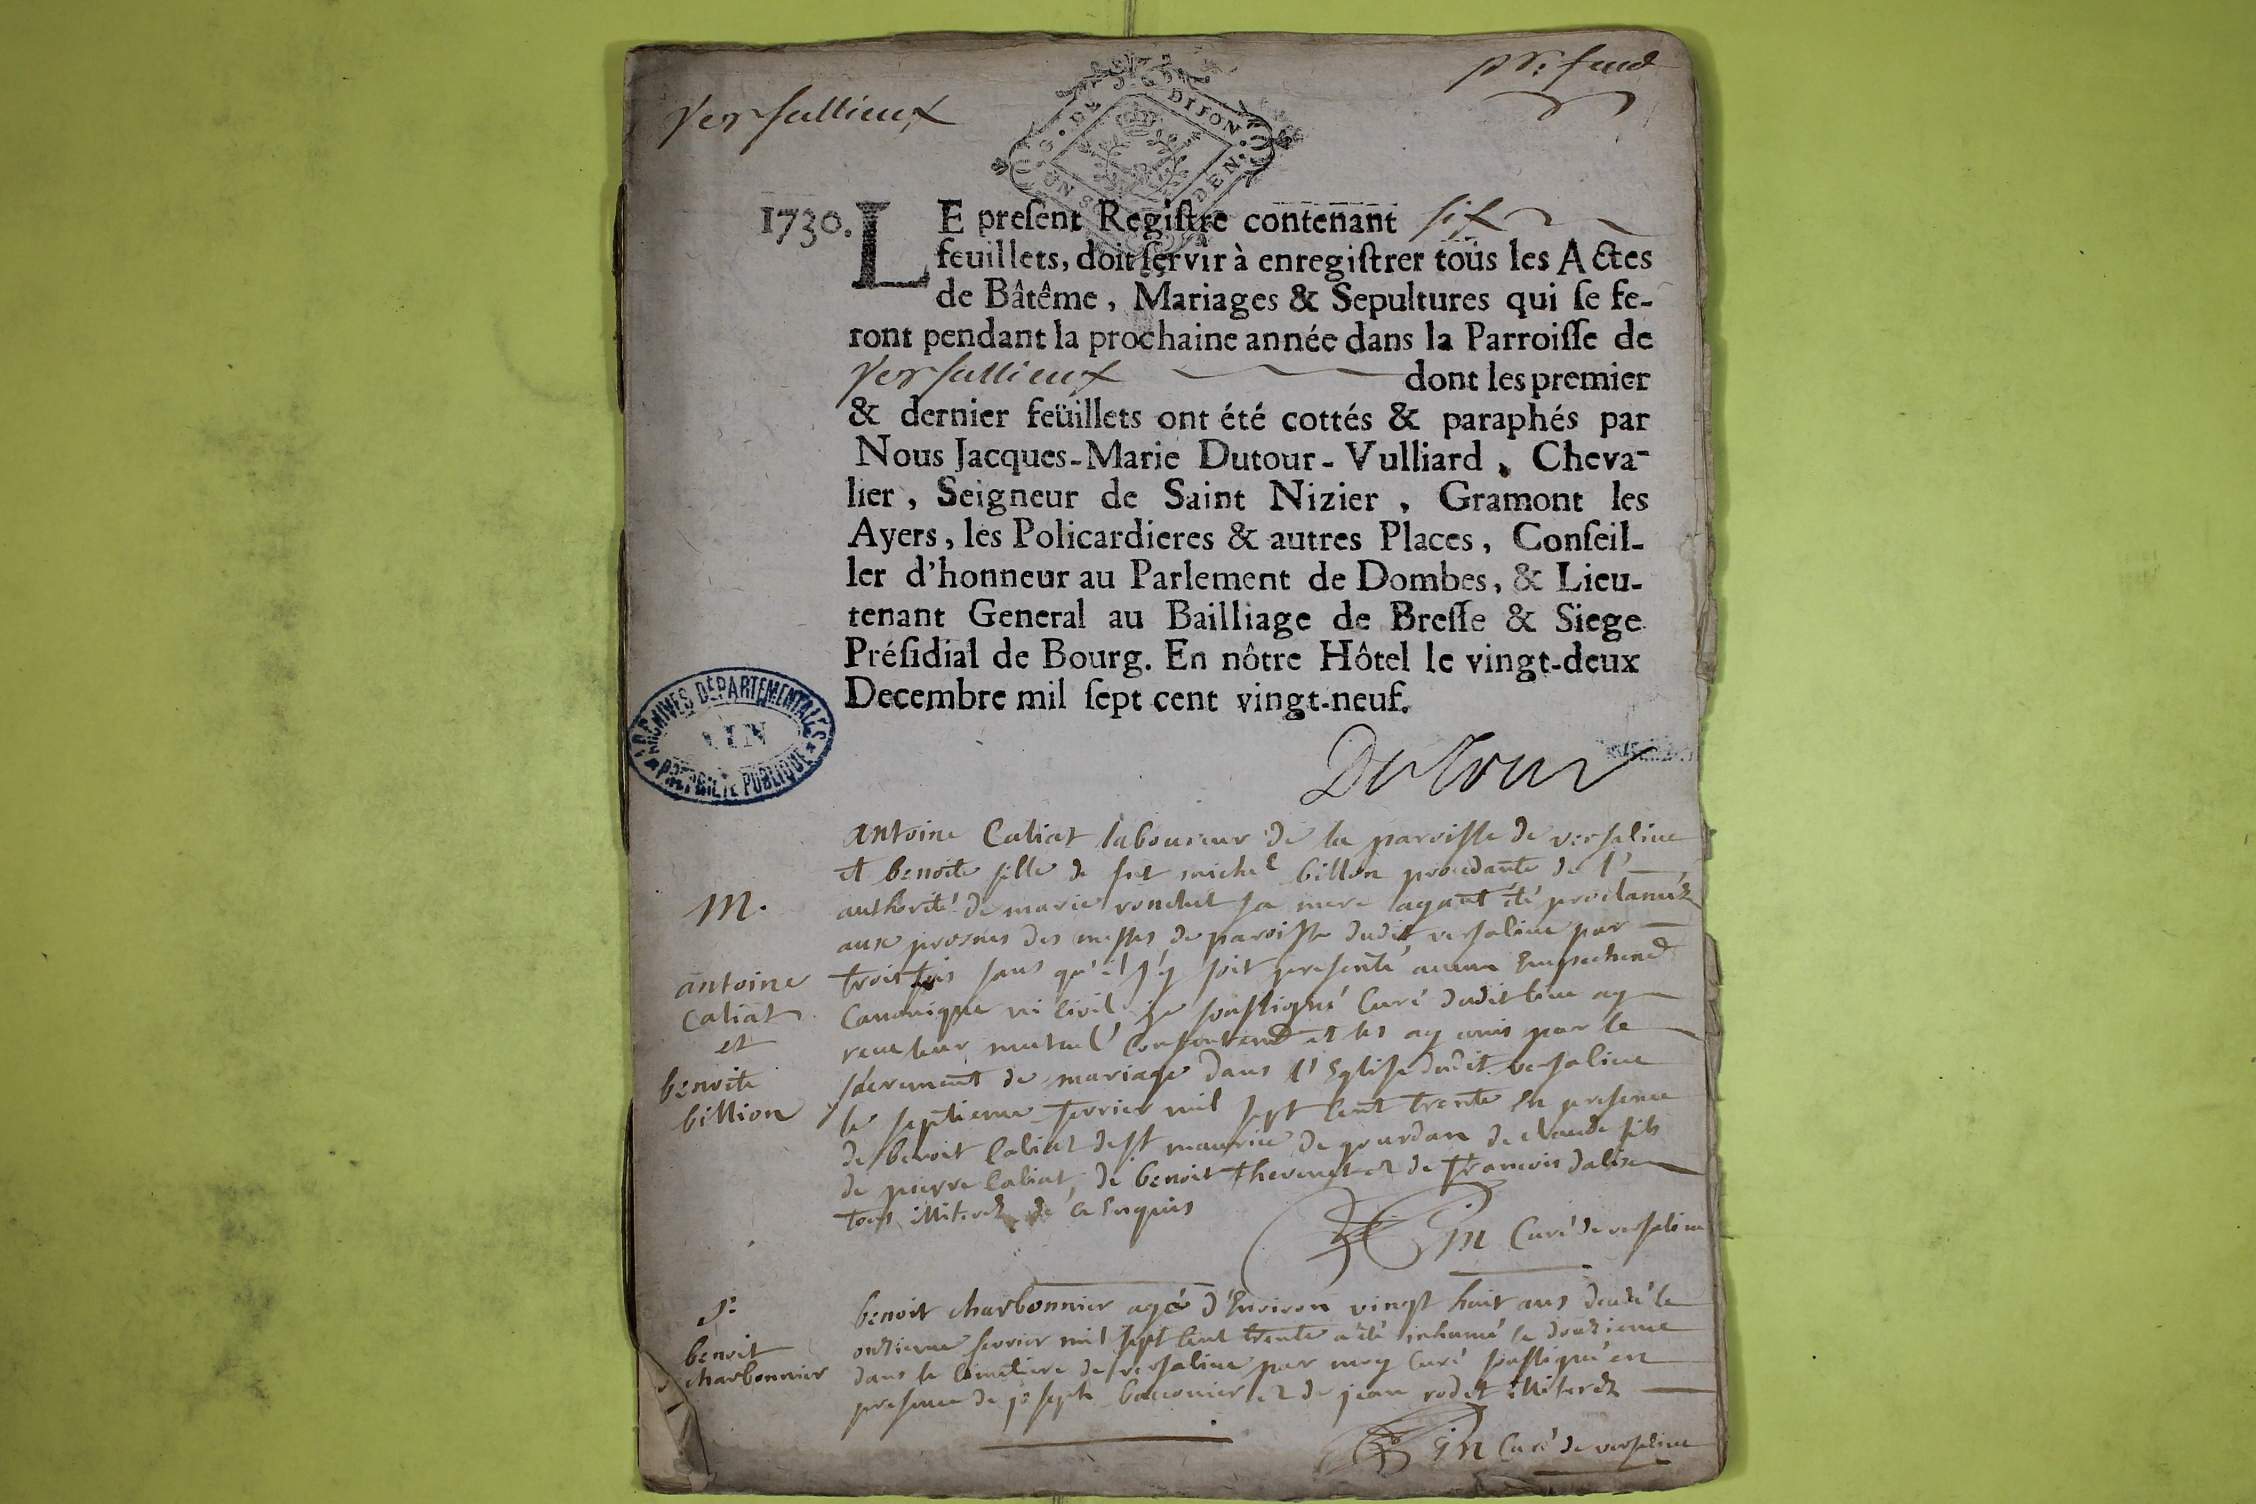 Versallieux
G. DE DIJON
UN SOL
DEN.
1730. LE preſent Regiſtre contenant six
feuillets, doit ſervir à enregiſtrer tous les Actes
de Bâtême, Mariages & Sepultures qui ſe fe-
ront pendant la prochaine année dans la Parroiſſe de
Versallieux dont les premier
& dernier feüillets ont été cottés & paraphés par
Nous Jacques-Marie Dutour-Vulliard, Cheva-
lier, Seigneur de Saint Nizier, Gramont les
Ayers, les Policardieres & autres Places, Conſeil-
ler d'honneur au Parlement de Dombes, & Lieu-
tenant General au Bailliage de Breſſe & Siege
Préſidial de Bourg. En nôtre Hôtel le vingt-deux
Decembre mil ſept cent vingt-neuf.
ARCHIVES DÉPARTEMENTALES
AIN
PROPRIÉTÉ PUBLIQUE
Dutour
M.
antoine
Caliat
et
benoite
billion
antoine Caliat laboureur de la paroisse de versalieu
et benoite fille de fut michel billon procedante de l'
authorité de marie sa mere ayant été proclamés
aux prosnes des messes de paroisse dudit versalieu par
trois fois sans qu'il s'y soit presenté aucun Empechemt
Canonique ni Civil je soussigné Curé dudit lieu ay
receu leur mutuel Consentemt et les ay unis par le
sacrement de mariage dans l'Eglise dudit versalieu
le septieme fevrier mil sept Cent trente En presence
de benoit Caliat de st maurice de gourdan de claude fils
de pierre Caliat, de benoit thevenet et de francois
tous illiterez de ce Enquis
Curé de versalieu
S.
benoit
charbonnier
benoit charbonnier agé d'Environ vingt huit ans decedé le
onzieme fevrier mil sept Cent trente a été inhumé le douzieme
dans le Cimetiere de versalieu par moy Curé soussigné en
presence de joseph et de jean rodet illiterez
Curé de versalieu